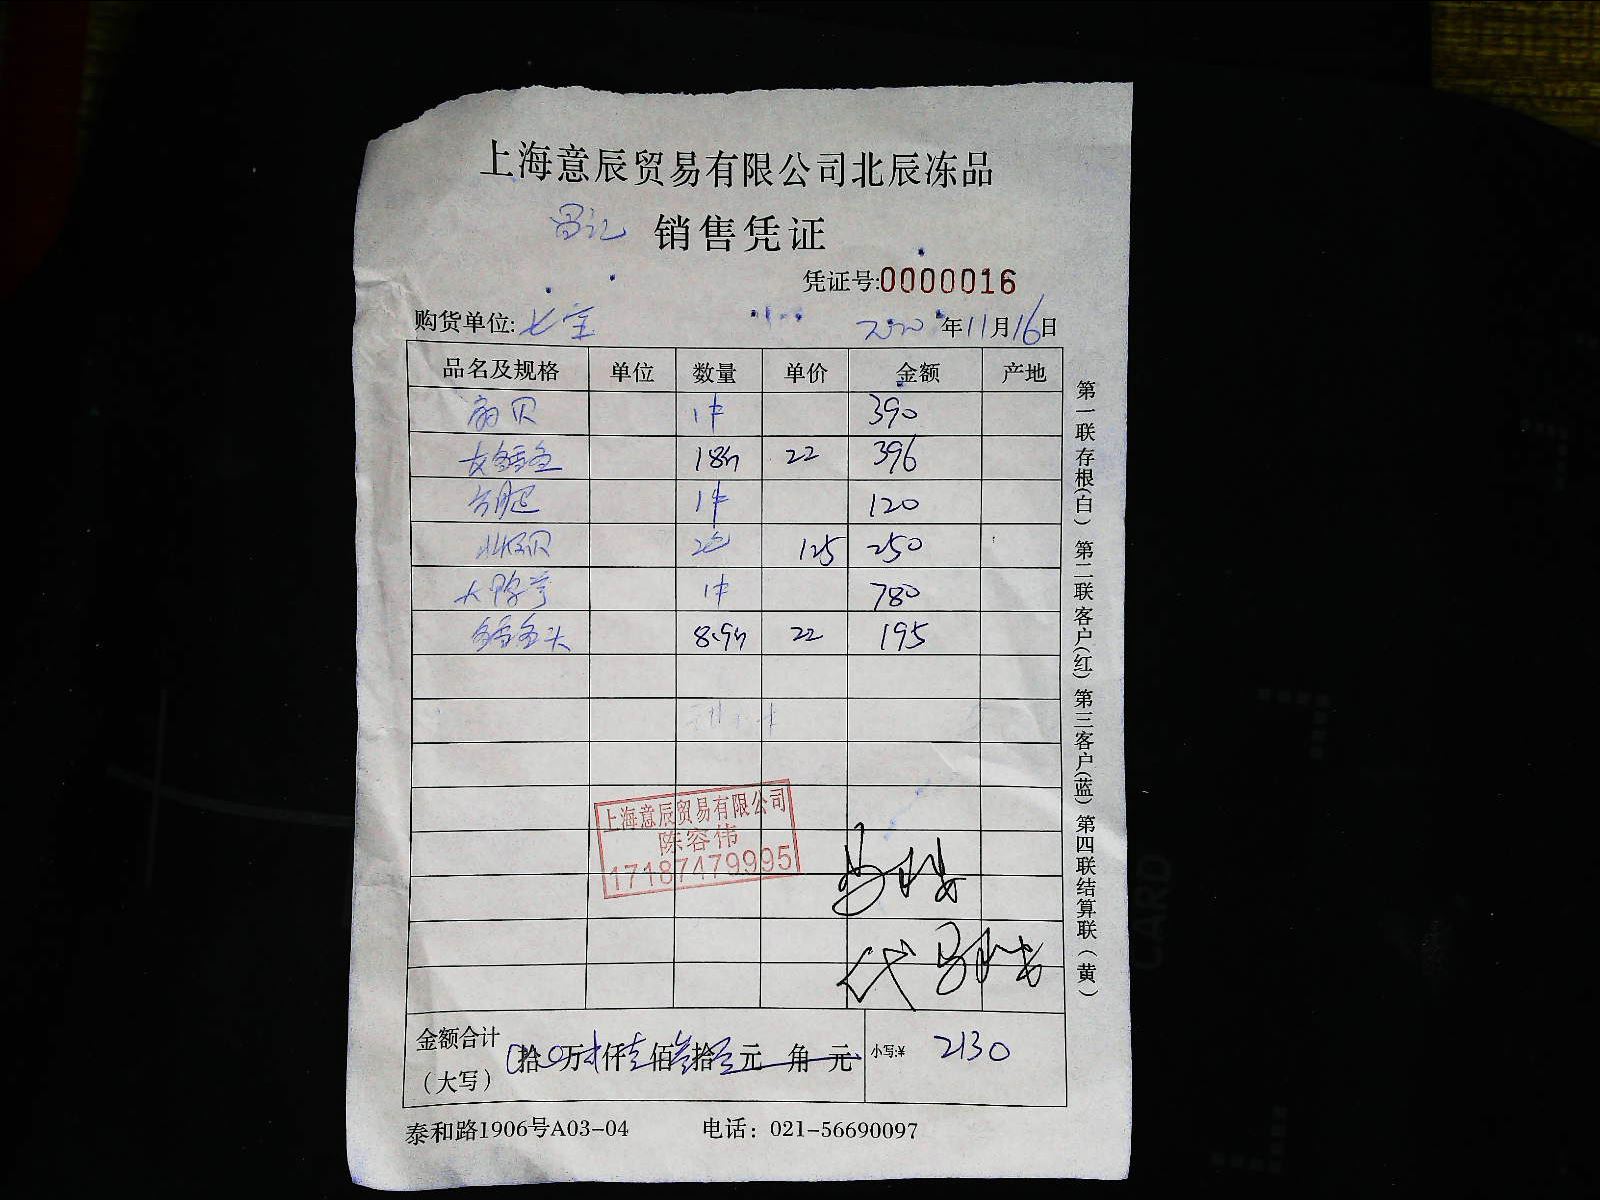 上海意辰贸易有限公司北辰冻品
销售凭证
凭证号:0000016
购货单位:七宝 2020年11月16日
品名及规格 单位 数量 单价 金额 产地
扇贝 1件 390
18 22 396
1件 120
北极贝 2包 125 250
大 1件 780
头 8.9 22 195
上海意辰贸易有限公司
陈容伟
17187479995
代
金额合计
(大写) 拾 万 仟 佰 拾 元 角 元 小写:¥ 2130
泰和路1906号A03-04 电话：021-56690097
第一联存根(白) 第二联客户(红) 第三客户(蓝) 第四联结算联(黄)